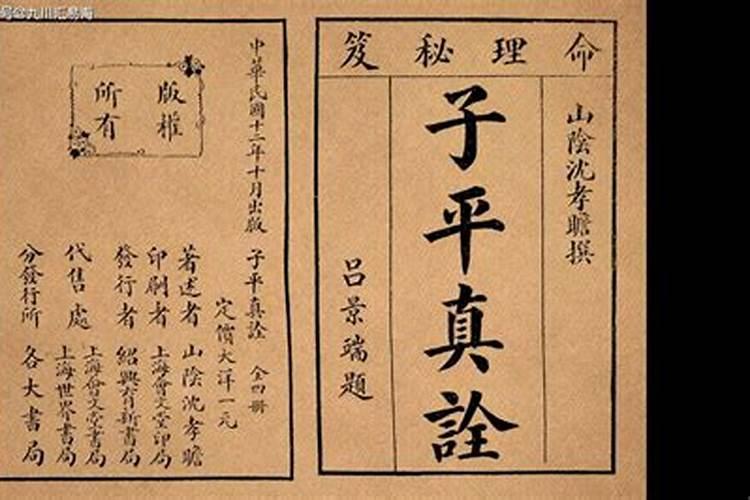 命理秘笈
山陰沈孝瞻撰
子平真詮
呂景瑞題
中華民國十二年十月出版
子平真詮 全四册
定價大洋一元
版權所有
著述者 山陰沈孝瞻
印刷者 上海會文堂印局
發行者 紹興育新書局
代售處 上海會文堂書局
上海世界書局
分發行所 各大書局
号@九川汇易海